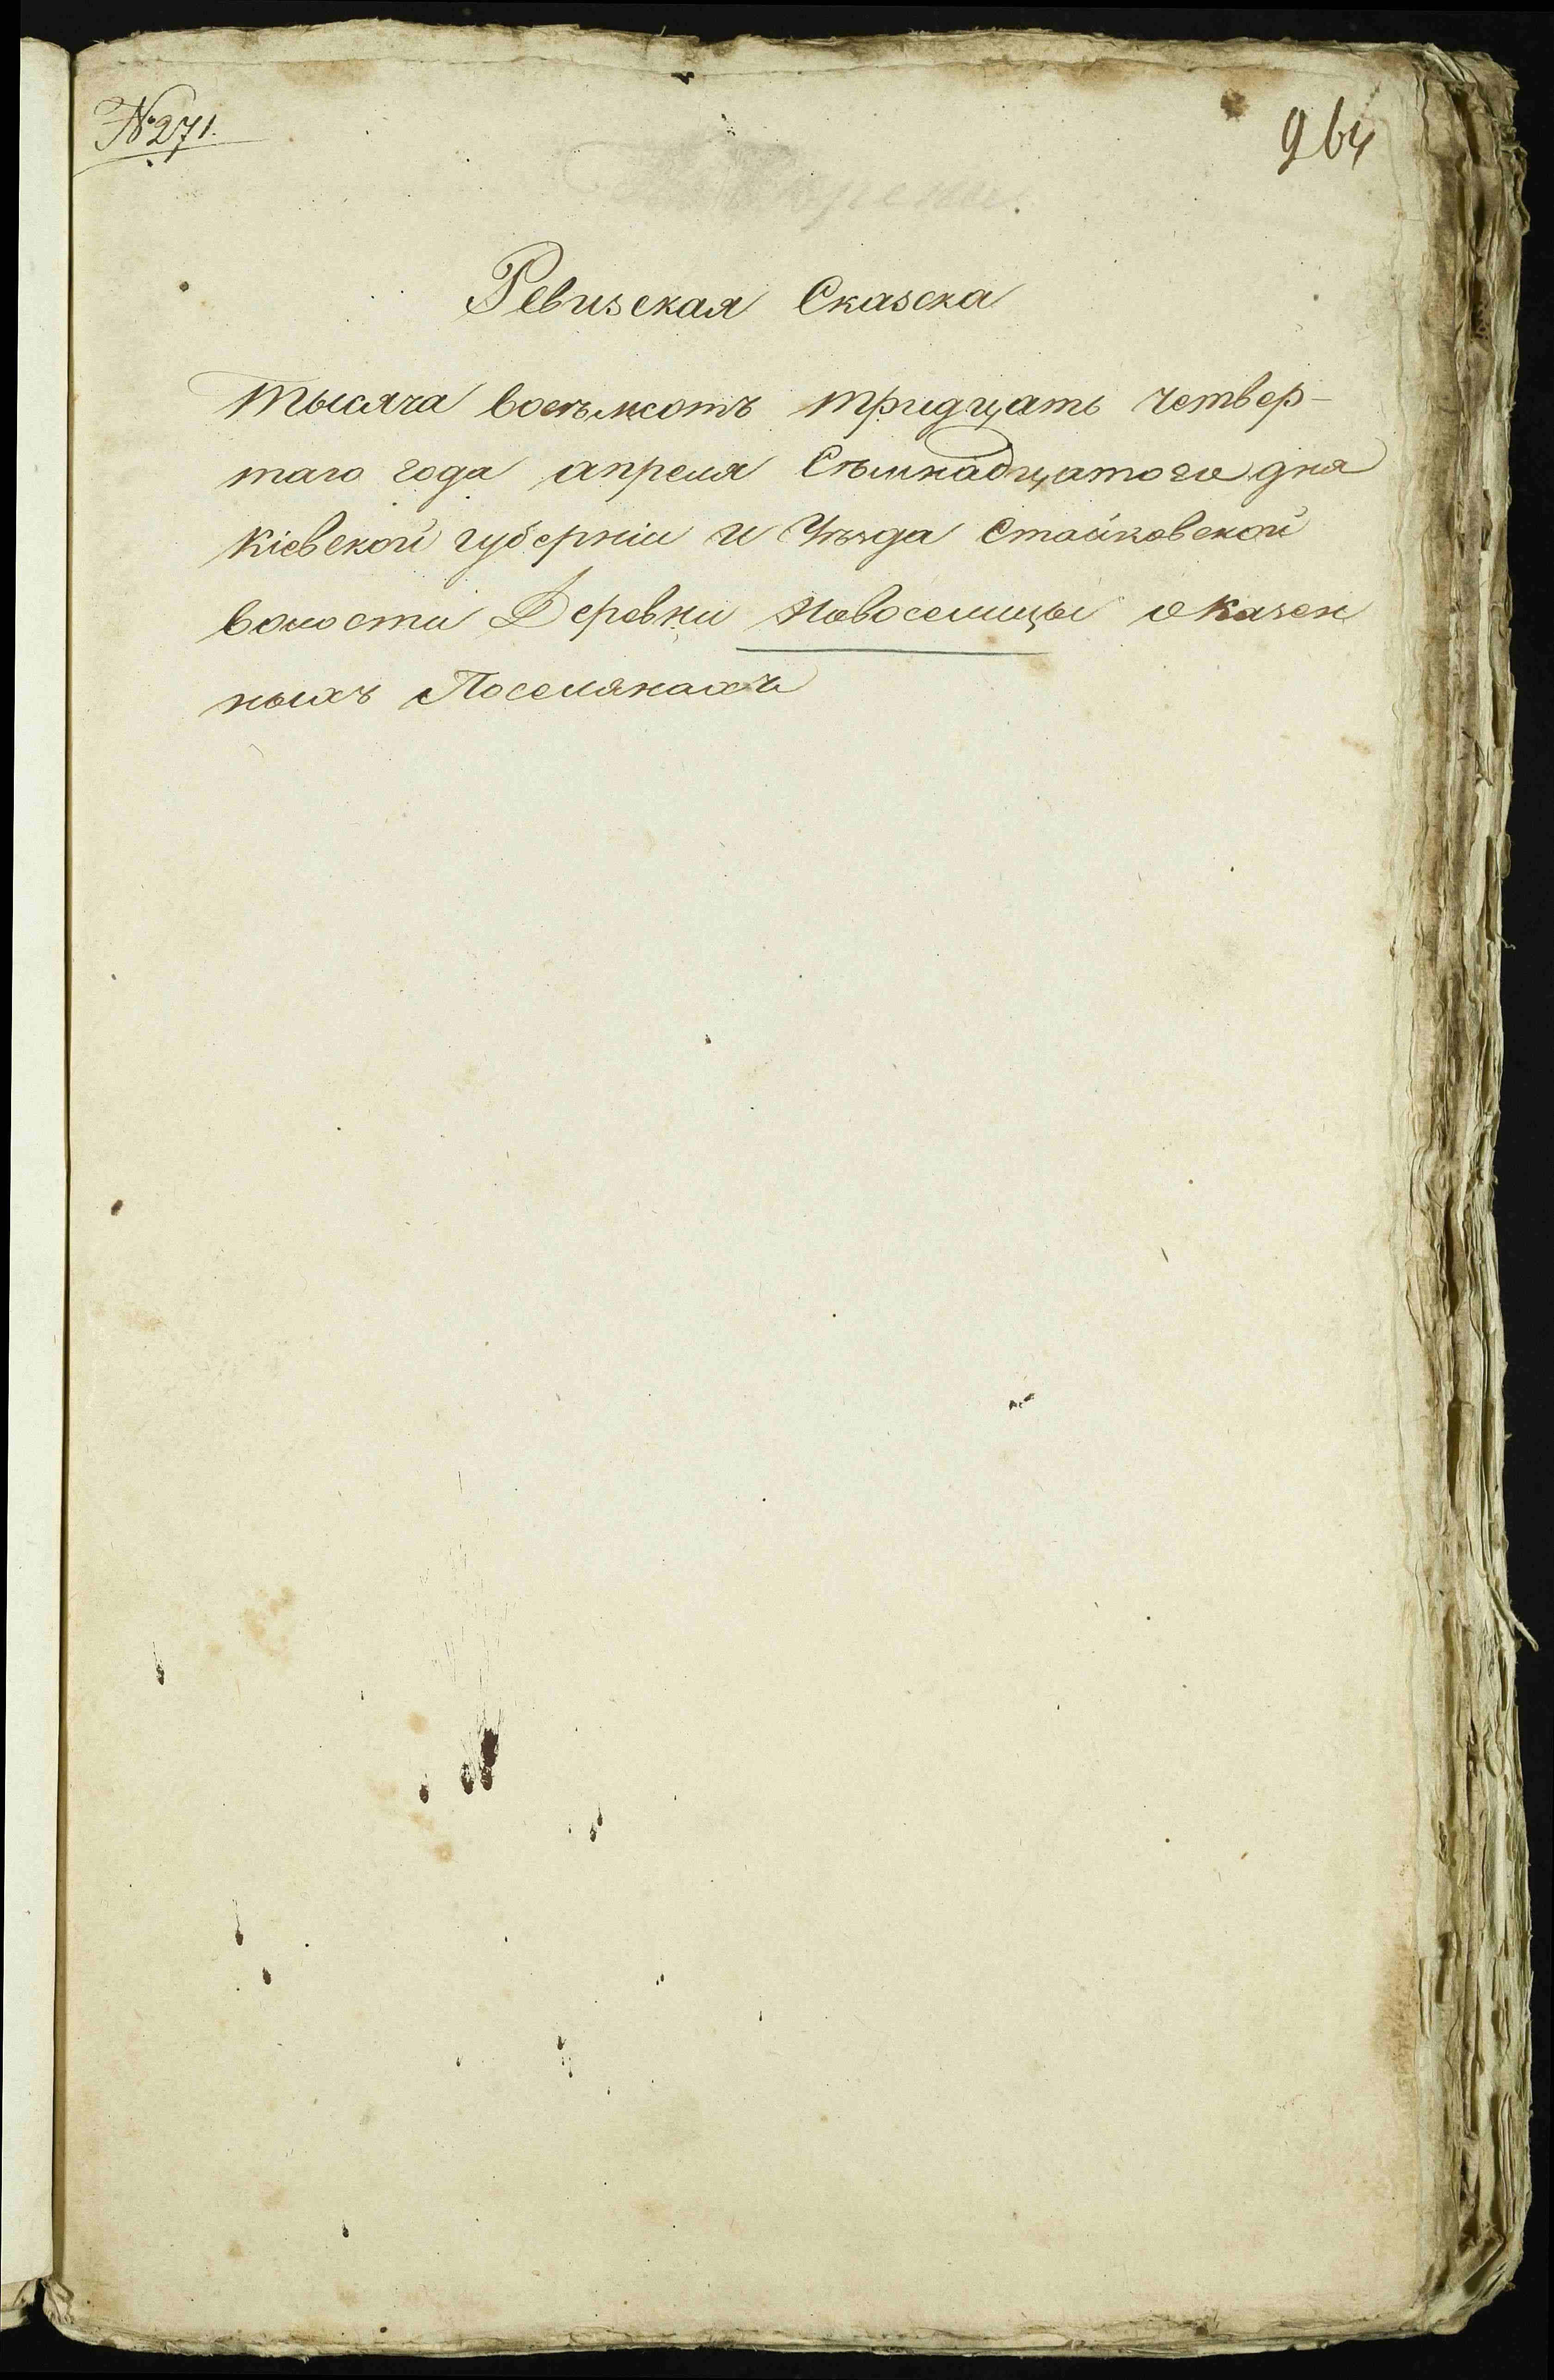 № 271.
964
Ревизская Сказска
Тысяча восемъсотъ тридцать четвер-
таго года апреля Съмнадцатого дня
Кіевской губерніи и Уѣзда Стайковской
волости Деревни Новоселицы о казен
ныхъ Поселянахъ